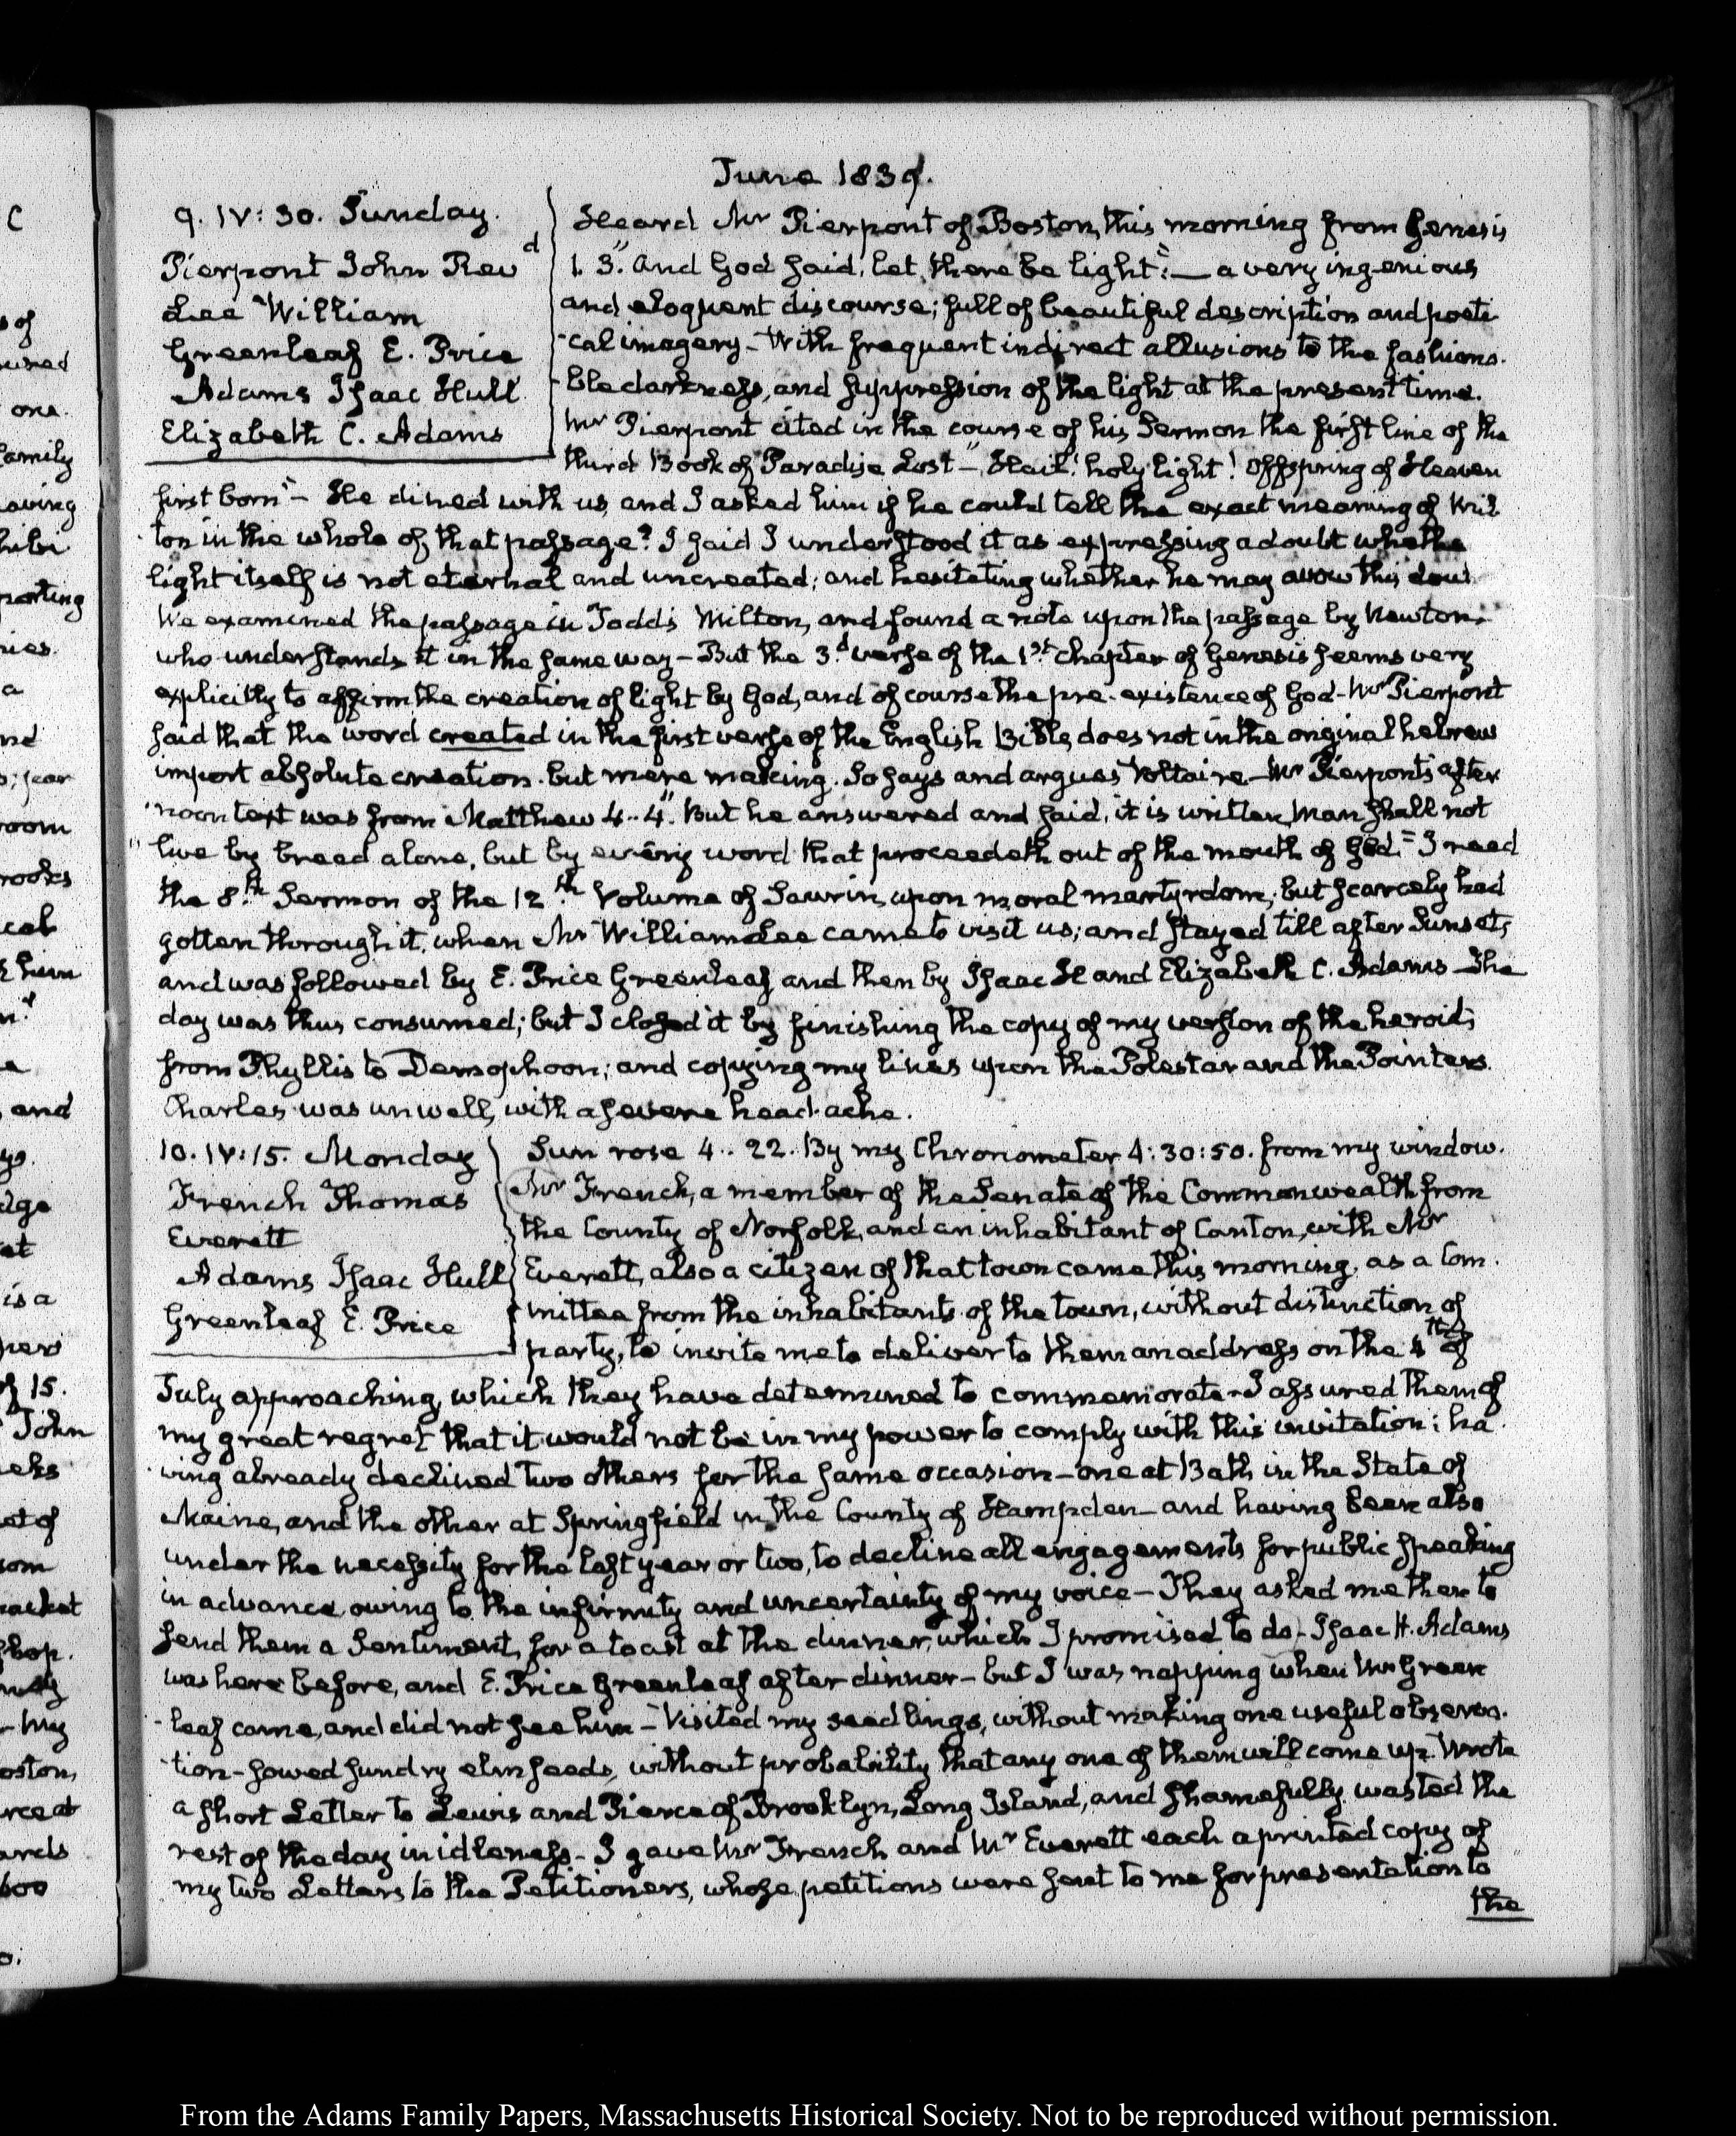 June 1839.
9. IV: 30. Sunday.
Pierpont John Revd
Lee William
Greenleaf E. Price
Adams Isaac Hull
Elizabeth C. Adams
Heard Mr Pierpont of Boston, this morning from Genesis
1. 3. "And God said, let there be light":— a very ingenious
and eloquent discourse; full of beautiful description and poeti
-cal imagery – With frequent indirect allusions to the fashiona-
-ble darkness, and suppression of the light at the present time.
Mr Pierpont cited in the course of his Sermon the first line of the
third Book of Paradise Lost – "Hail! holy light! Offspring of Heaven
first born" – He dined with us, and I asked him if he could tell the exact meaning of Mil
-ton in the whole of that passage? I said I understood it as expressing a doubt whethe
light itself is not eternal and uncreated; and hesitating whether he may avow this doubt
We examined the passage in Todd's Milton, and found a note upon the passage by Newton,
who understands it in the same way – But the 3.d verse of the 1st chapter of Genesis seems very
explicitly to affirm the creation of light by God, and of course the pre-existence of God – Mr Pierpont
said that the word created in the first verse of the English Bible, does not in the original hebrew
import absolute creation. but mere making. So says and argues Voltaire – Mr Pierpont's after
-noon text was from Matthew 4..4. "But he answered and said, it is written, Man shall not
" live by bread alone, but by every word that proceedeth out of the mouth of God." – I read
the 8.th Sermon of the 12.th Volume of Saurin, upon moral martyrdom; but scarcely had
gotten through it, when Mr William Lee came to visit us; and stayed till after Sunset,
and was followed by E. Price Greenleaf and then by Isaac H and Elizabeth C. Adams – The
day was thus consumed; but I closed it by finishing the copy of my version of the heroid,
from Phyllis to Demophoon; and copying my lines upon the Polestar and the Pointers.
Charles was unwell, with a severe head-ache.
10. IV: 15. Monday
French Thomas
Everett
Adams Isaac Hull
Greenleaf E. Price
Sun rose 4..22. By my Chronometer 4:30:50. from my window.
Mr French, a member of the Senate of the Commonwealth from
the County of Norfolk, and an inhabitant of Canton, with Mr
Everett, also a citizen of that town came this morning, as a Com-
mittee from the inhabitants of the town, without distinction of
party, to invite me to deliver to them an address on the 4th of
July approaching, which they have determined to commemorate – I assured them of
my great regret that it would not be in my power to comply with this invitation; ha
-ving already declined two others for the same occasion – one at Bath in the State of
Maine, and the other at Springfield in the County of Hampden – and having been also
under the necessity for the last year or two, to decline all engagements for public speaking
in advance owing to the infirmity and uncertainty of my voice – They asked me then to
send them a Sentiment, for a toast at the dinner, which I promised to do – Isaac H. Adams
was here before, and E. Price Greenleaf after dinner – but I was napping when Mr Green
-leaf came, and did not see him – Visited my seedlings, without making one useful observa-
-tion – sowed sundry elm seeds, without probability that any one of them will come up. Wrote
a short Letter to Lewis and Pierce of Brooklyn, Long Island, and shamefully wasted the
rest of the day in idleness – I gave Mr French and Mr Everett each a printed copy of
my two Letters to the Petitioners, whose petitions were sent to me for presentation to
the
From the Adams Family Papers, Massachusetts Historical Society. Not to be reproduced without permission.